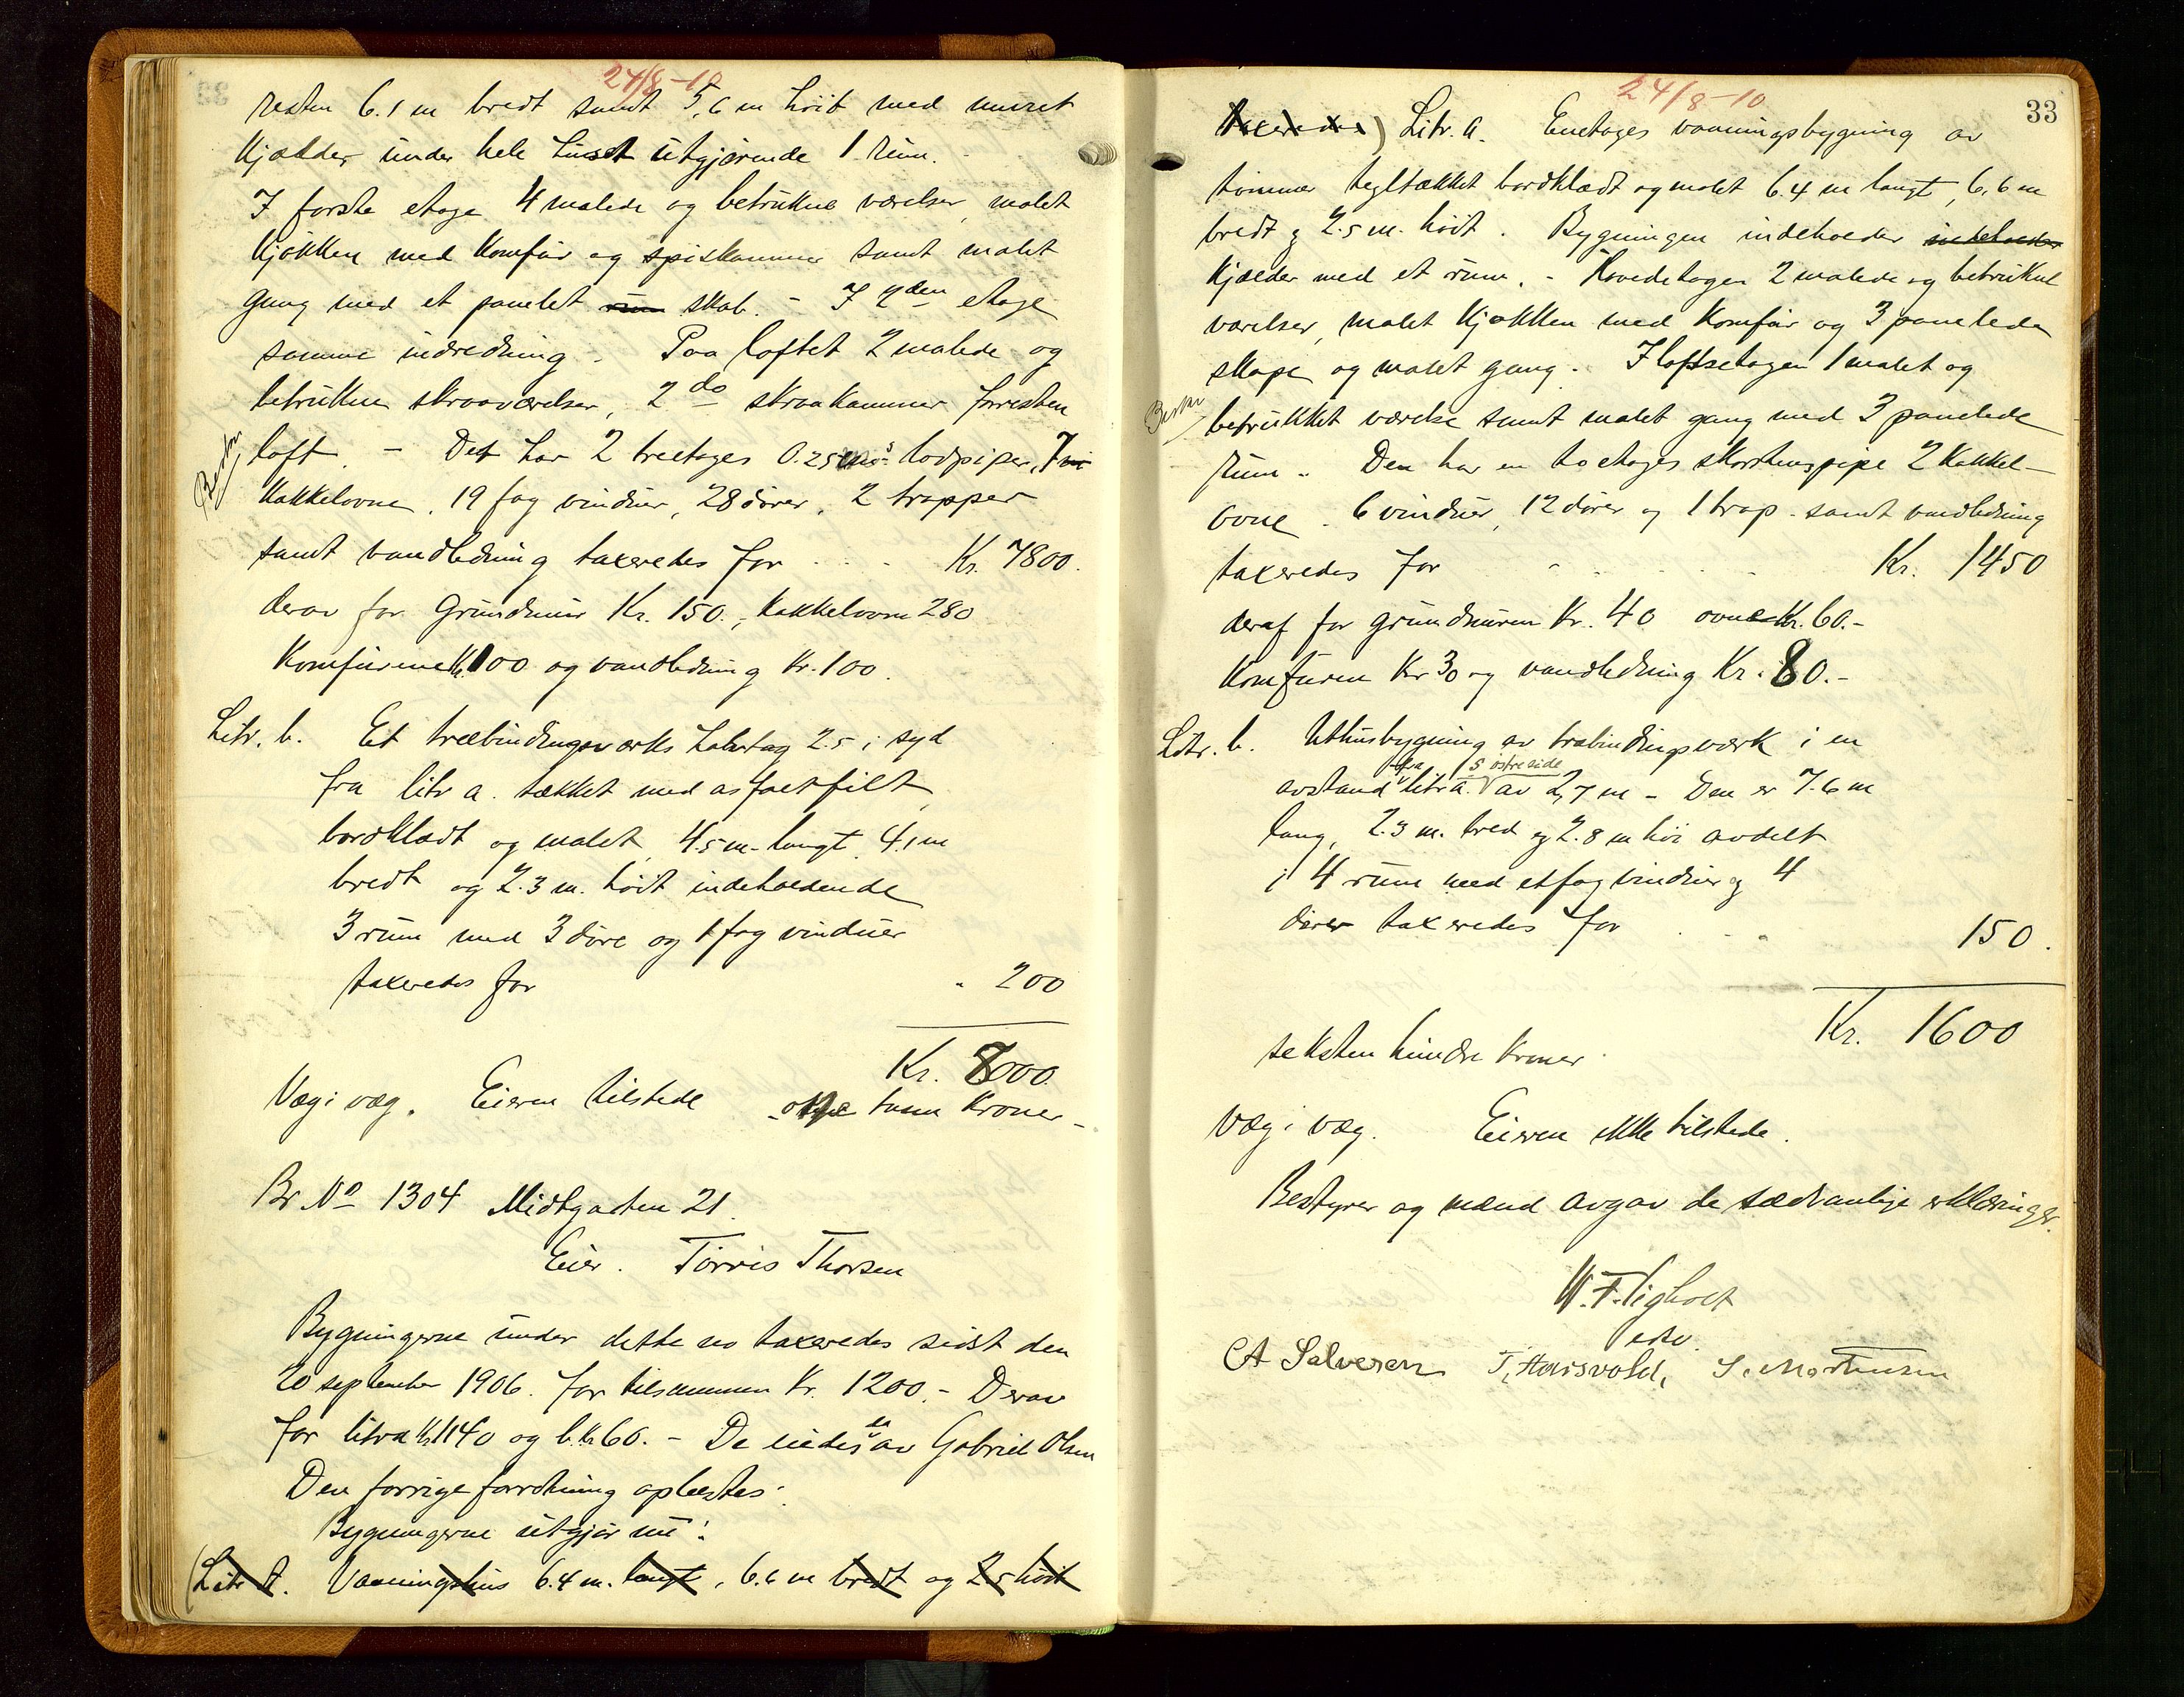 24/8-10
resten 6.1 m bredt samt 5,6 m høit med muret
Kjælder under hele huset utgjørende 1 rum.
I første etage 4 malede og betrukne værelser, malet
Kjøkken med Komfur og spiskammer samt malet
gang med et panelet rum skab. - I 2den etage
samme indredning. Paa loftet 2 malede og
betrukne skraaværelser, 2 do skraakammer forresten
loft. - Det har 2 treetages 0.25 lodpiper, 7
Kakkelovne, 19 fag vinduer, 28 dører, 2 trapper
samt vandledning taxeredes for . . . Kr. 7800.
derav for Grundmur Kr. 150., Kakkelovne 280
Komfurene Kr. 100 og vandledning Kr. 100.
Litr. b. Et træbindingsværks halvtag 2.5 i syd
fra litr a. tækket med asfaltfilt,
bordklædt og malet, 4.5 m. langt, 4.1 m
bredt og 2.3 m. høit indeholdende
3 rum med 3 døre og 1 fag vinduer
taxeredes for " 200
Kr. 8000.
Væg i væg. Eieren tilstede - otte tusen Kroner -
Br No 1304 Midtgaten 21.
Eier. Tørris Thorsen
Bygningerne under dette no taxeredes sidst den
20 september 1906. for tilsammen Kr. 1200. - Derav
for litra Kr. 1140 og b. Kr. 60. - De eiedes da av Gabriel Olsen
Den forrige forretning oplæstes.
Bygningerne utgjør nu:
(Litr A. Vaaningshus 6.4 m. langt, 6.6 m bredt og 2.5 høit
24/8-10
33
taxeredes) Litr. a. Enetages vaaningsbygning av
tømmer tegltækket bordklædt og malet 6.4 m langt, 6,6 m
bredt og 2.5 m. høit. Bygningen indeholder indeholder
Kjælder med et rum. - Hovedetagen 2 malede og betrukne
værelser, malet Kjøkken med Komfur og 3 panelede
skape og malet gang. I loftsetagen 1 malet og
betrukket værelse samt malet gang med 3 panelede
rum. Den har en toetages skorstenspipe 2 Kakkel-
ovne. 6 vinduer, 12 dører og 1 trap. samt vandledning
taxeredes for Kr. 1450
deraf for grundmuren Kr. 40 ovne Kr. 60.-
Komfuren Kr 30 og vandledning Kr. 80.-
Litr. b. Uthusbygning av træbindingsværk i en
avstand fra litr a.s østre side av 2,7 m - Den er 7.6 m
lang, 2.3 m. bred og 2.8 m høi avdelt
i 4 rum med et fag vinduer og 4
dører taxeredes for 150.
Kr. 1600
seksten hundre kroner.
Væg i væg. Eieren ikke tilstede.
Bestyrer og mænd avgav de sædvanlige erklæringer.
CA Salvesen S. Mortensen